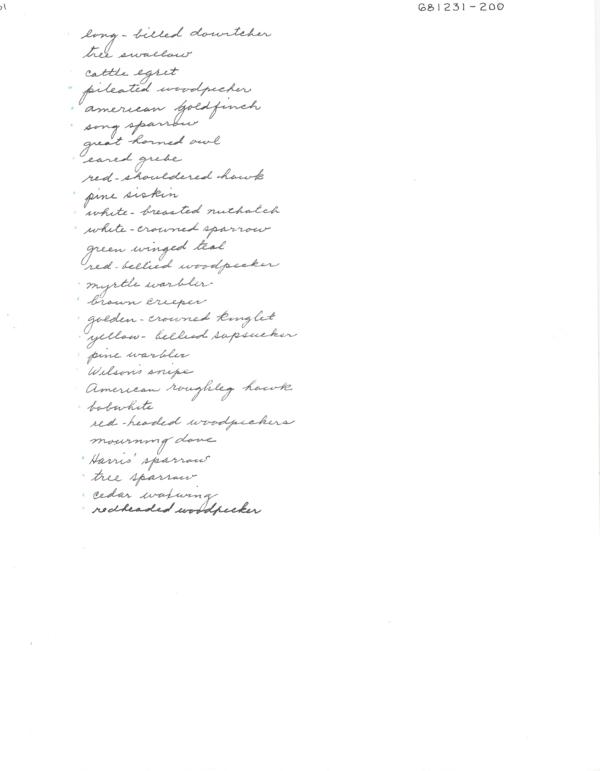 G81231-200
long-billed dowitcher
tree swallow
cattle egret
pileated woodpecker
american goldfinch
song sparrow
great horned owl
eared grebe
red-shouldered hawk
pine siskin
white-breasted nuthatch
white-crowned sparrow
green winged teal
red-bellied woodpecker
myrtle warbler
brown creeper
golden-crowned kinglet
yellow-bellied sapsucker
pine warbler
Wilson's snipe
American roughleg hawk
bobwhite
red-headed woodpeckers
mourning dove
Harris' sparrow
tree sparrow
cedar waxwing
redheaded woodpecker